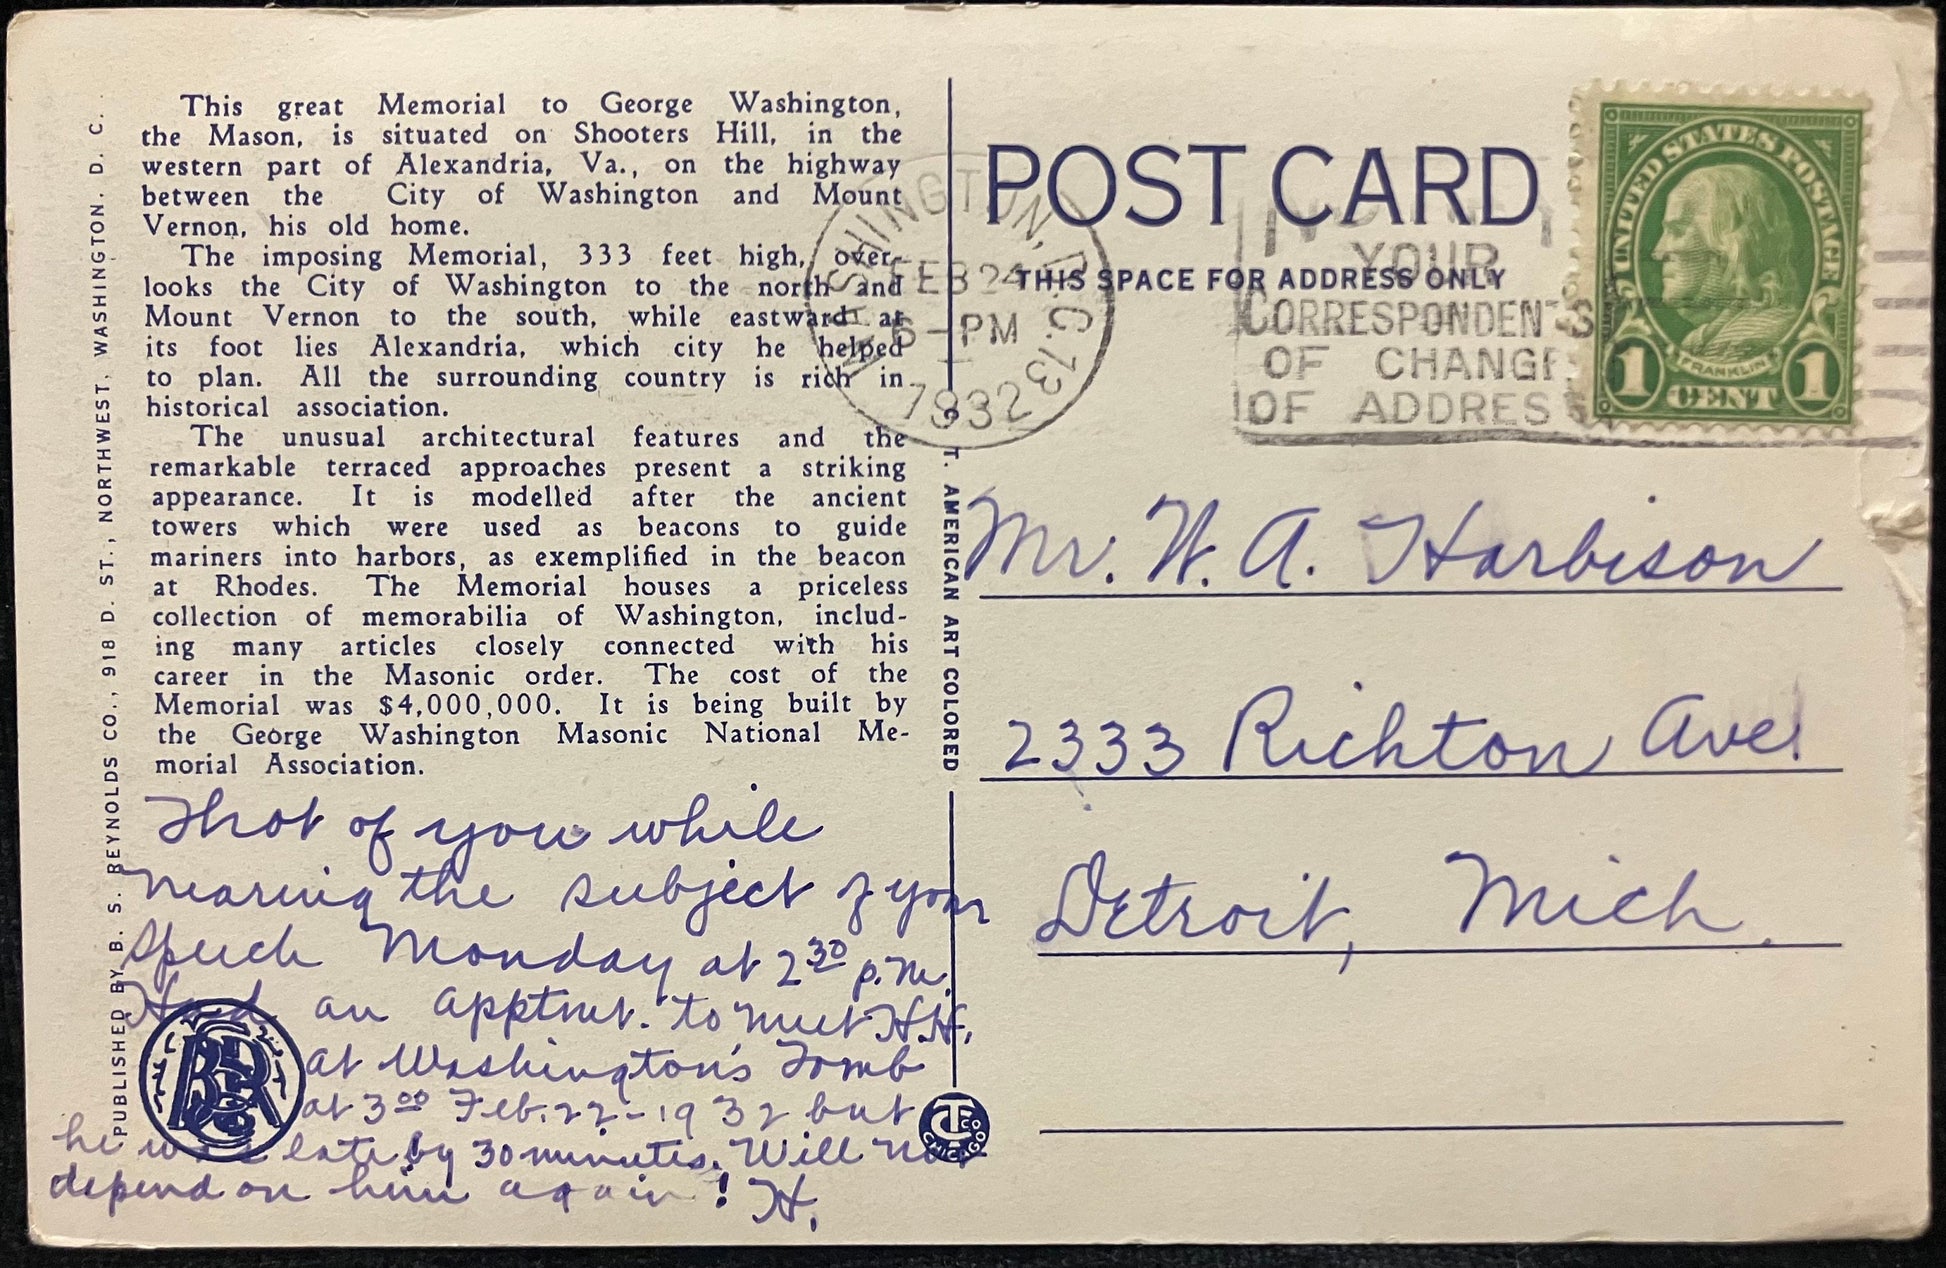 This great Memorial to George Washington,
the Mason, is situated on Shooters Hill, in the
western part of Alexandria, Va., on the highway
between the City of Washington and Mount
Vernon, his old home.
The imposing Memorial, 333 feet high, over-
looks the City of Washington to the north and
Mount Vernon to the south, while eastward at
its foot lies Alexandria, which city he helped
to plan. All the surrounding country is rich in
historical association.
The unusual architectural features and the
remarkable terraced approaches present a striking
appearance. It is modelled after the ancient
towers which were used as beacons to guide
mariners into harbors, as exemplified in the beacon
at Rhodes. The Memorial houses a priceless
collection of memorabilia of Washington, includ-
ing many articles closely connected with his
career in the Masonic order. The cost of the
Memorial was $4,000,000. It is being built by
the George Washington Masonic National Me-
morial Association.
Thot of you while
nearing the subject of your
speech Monday at 2 30 p.m.
Had an apptmt. to meet H.H.
at Washington's Tomb
at 3 00 Feb. 22-1932 but
he was late by 30 minutes. Will not
depend on him again! H.
PUBLISHED BY B. S. REYNOLDS CO., 918 D. ST., NORTHWEST, WASHINGTON, D. C.
BSR Co
C. T. AMERICAN ART COLORED
CT CO
CHICAGO
POST CARD
THIS SPACE FOR ADDRESS ONLY
WASHINGTON, D.C. 13
FEB 24
6-PM
1932
YOUR
CORRESPONDENTS
OF CHANGE
OF ADDRESS
UNITED STATES POSTAGE
FRANKLIN
1 CENT 1
Mr. W. A. Harbison
2333 Richton Ave.
Detroit, Mich.